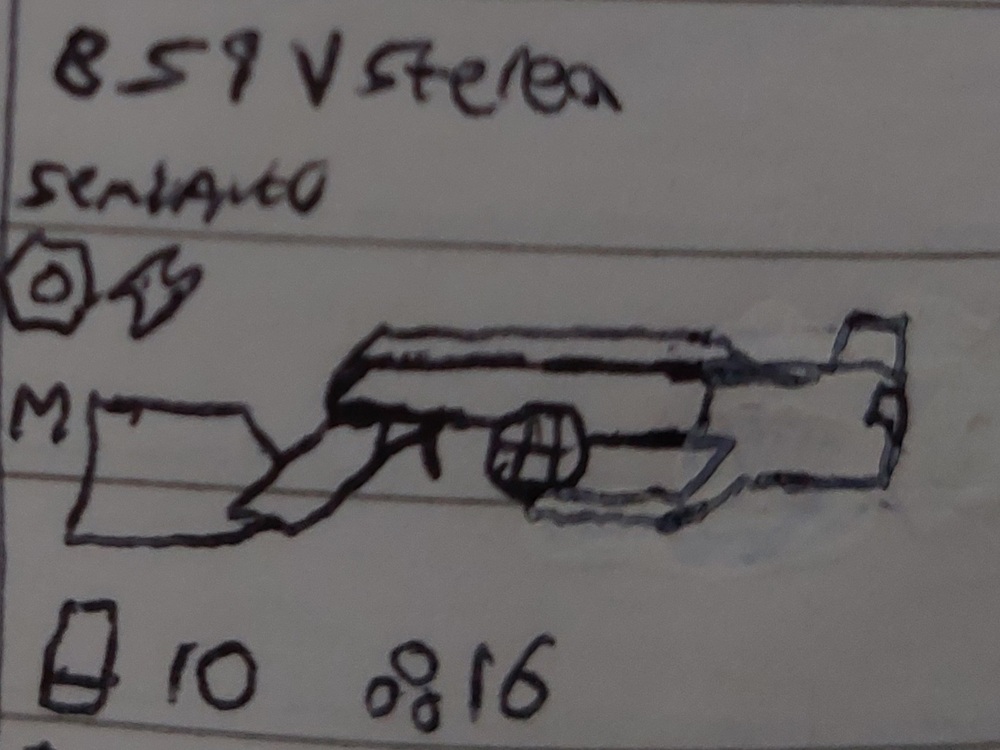 859 V Sterea
SemiAuto
M
10 16